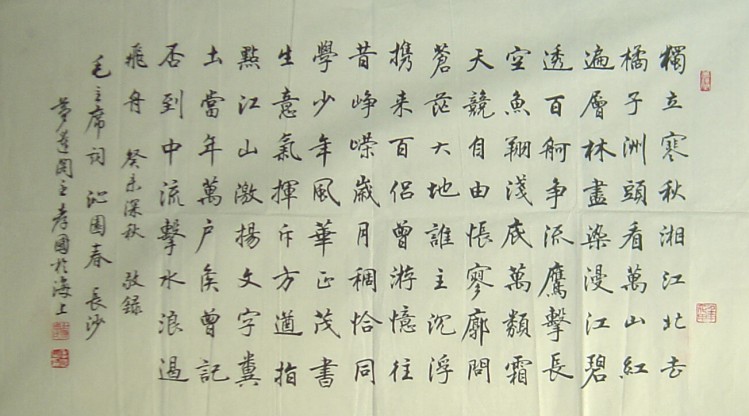 獨立寒秋湘江北去
橘子洲頭看萬山紅
遍層林盡染漫江碧
透百舸争流鷹擊長
空魚翔淺底萬類霜
天競自由悵寥廓問
蒼茫大地誰主沉浮
携来百侣曾游憶往
昔崢嶸歲月稠恰同
學少年風華正茂書
生意氣揮斥方遒指
點江山激揚文字糞
土當年萬户侯曾記
否到中流擊水浪遏
飛舟 癸未深秋 敬録
毛主席詞 沁園春 長沙
夢蓮閣主孝國於海上